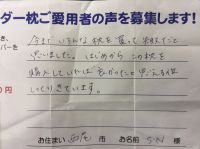 ダー枕ご愛用者の声を募集します!
き、
バーを
今までいろんな枕を買って失敗だと
思いました。はじめから この枕を
購入していれば良かったと思える位
しっくりきています。
0円
お住まい 西尾 市 お名前 S・N 様